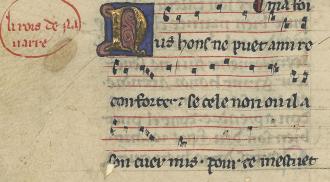 li rois de na
uarre
ma foi
Nus hons ne puet ami re
conforter. se cele non ou il a
son cuer mis. pour ce mestuet